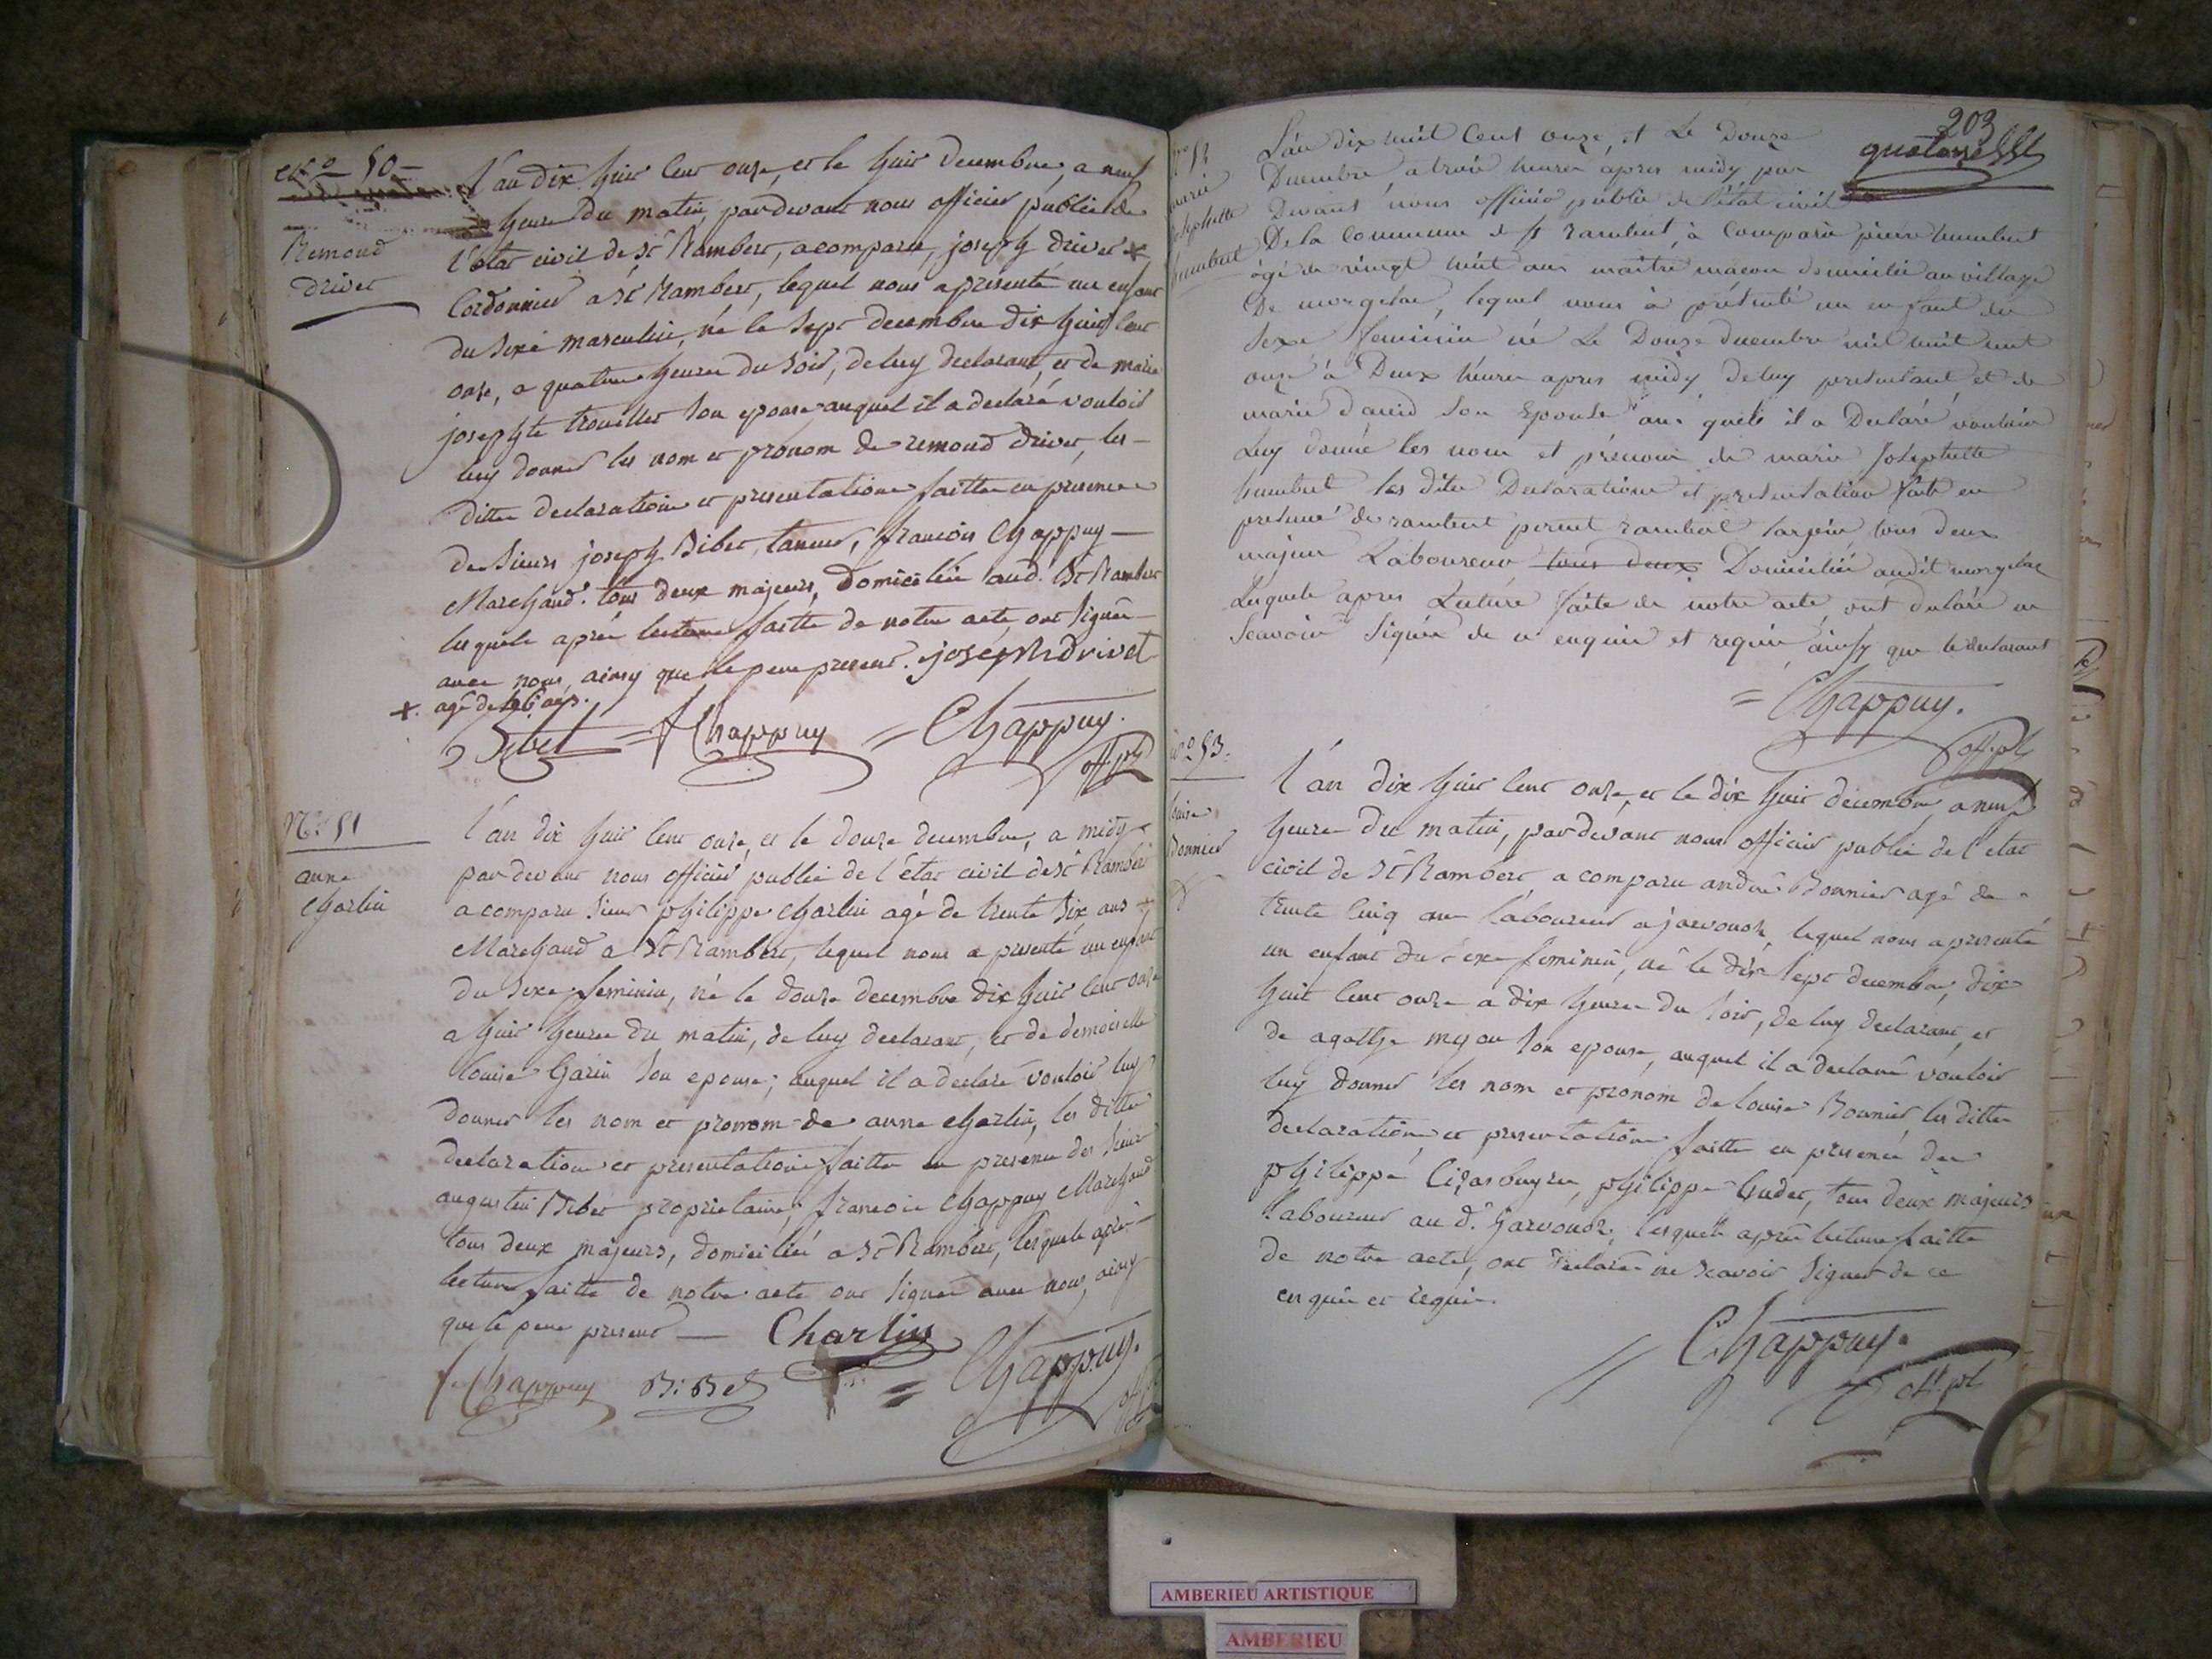 N.o 50
Remond
drivet
L'an dix huit cent onze, et le huit decembre, a neuf
heure du matin, pardevant nous officier public de
l'etat civil de St Rambert, a comparu, joseph drivet +
Cordonnier a St Rambert, lequel nous a presenté un enfant
du sexe masculin, né le sept decembre dix huit cent
onze, a quatre heures du soir, de luy declarant, et de marie
josephte trouillet son epouse auquel il a declaré vouloir
luy donner les nom et pronom de remond drivet, les
ditte declaration et presentation faitte en presence
de sieurs joseph Bibet, tanneur, francois Chappuy
Marchand. tous deux majeurs, domiciliés aud. St Rambert
lesquels aprés lecture faitte de notre acte, ont signés
avec nous, ainsy que le pere present. joseph drivet
+ agé de 46 ans.
Bibet = f Chappuy = Chappuy.
off. pb
N.o 51
anne
charlin
L'an dix huit cent onze, et le douze decembre, a midy
pardevant nous officier public de l'état civil de St Rambert
a comparu sieur philippe charlin agé de trente six ans
Marchand a St Rambert, lequel nous a presenté un enfant
du sexe feminin, né le douze decembre dix huit cent onze
a huit heures du matin, de luy declarant, et de demoiselle
louise Garin son epouse; auquel il a declaré vouloir luy
donner les nom et pronom de anne charlin, les ditte
declaration et presentation faitte en presence des sieurs
augustin Bibet proprietaire, francois Chappuy Marchand
tous deux majeurs, domiciliés a St Rambert, lesquels aprés
lecture faitte de notre acte ont signés avec nous, ainsy
que le pere present — Charlin
f. Chappuy Bibet = Chappuy.
203
quatorze
52
marie
josephtte
humbert
L'an dix huit Cent onze, et Le Douze
Decembre, a trois heures apres midy par
Devant nous officier public de l'état civil
De la Commune de st rambert, à Comparu pierre humbert
agé de vingt huit ans maitre maçon domicilié au village
De morgelas, lequel nous à présenté un enfant du
sexe feminin né Le Douze decembre mil huit cent
onze à Deux heures apres midy de luy presentant et de
marie david son Epouse auquels il a Declaré vouloir
Luy donné les nom et prénom de marie Josephtte
humbert les dites Declaration et presentation faite en
presence de rambert perret rambert tous deux
majeur Laboureur tous deux Domiciliés audit morgelas
Lesquels apres Lecture faite de notre acte, ont declaré ne
scavoir signer de ce enquis et requis ainsy que le declarant
= Chappuy.
off. pb
N.o 53.
louise
Bonnier
L'an dix huit cent onze, et le dix huit decembre, a neuf
heures du matin, pardevant nous officier public de l'etat
civil de St Rambert, a comparu andré Bonnier agé de
trente cinq ans laboureur a javornoz, lequel nous a presenté
un enfant du sexe feminin, né le dix sept decembre, dix
huit cent onze a dix heures du soir, de luy declarant, et
de agathe myou son epouse, auquel il a declaré vouloir
luy donner les nom et pronom de louise Bonnier, les dittes
declaration, et presentation faitte en presence de
philippe, philippe tous deux majeurs
laboureurs au d. lesquels aprés lecture faitte
de notre acte, ont declaré ne scavoir signer de ce
enquis et requis.
Chappuy.
off. pb
AMBERIEU ARTISTIQUE
AMBERIEU